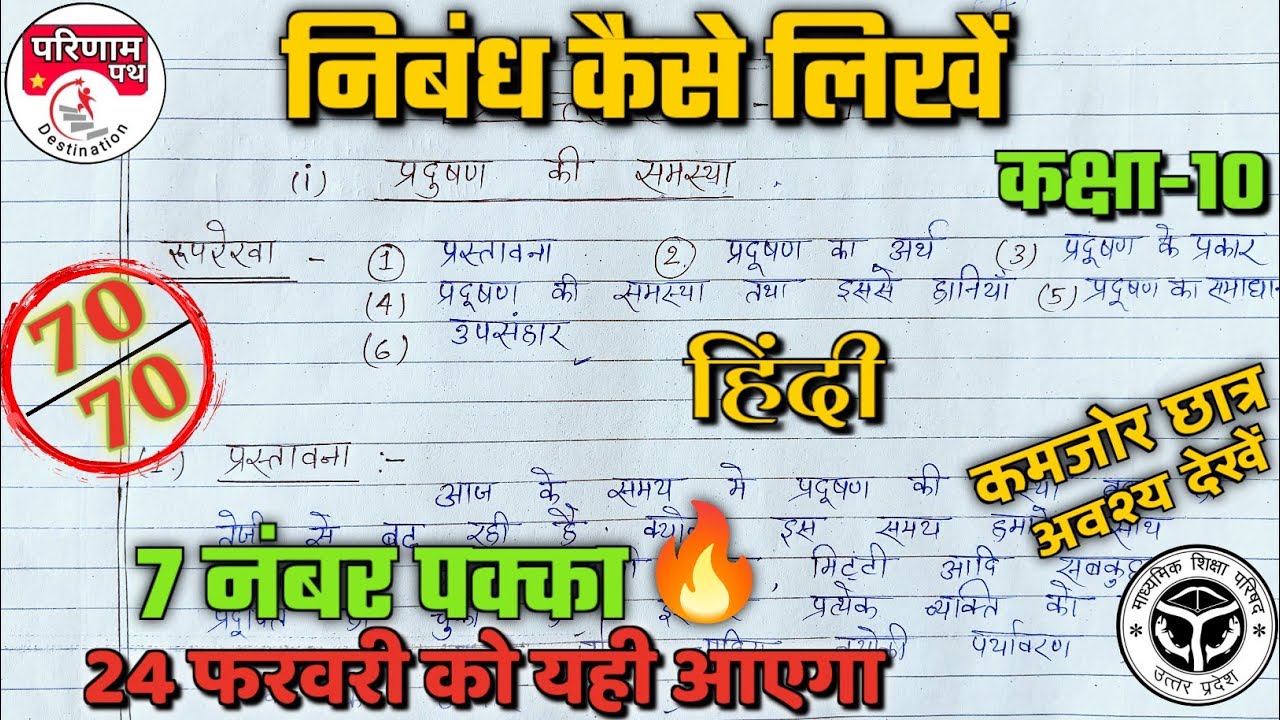 परिणाम
पथ
Destination
निबंध कैसे लिखें
कक्षा-10
(i) प्रदुषण की समस्या
रूपरेखा - (1) प्रस्तावना (2) प्रदूषण का अर्थ (3) प्रदूषण के प्रकार
(4) प्रदूषण की समस्या तथा इससे हानियाँ (5) प्रदूषण का समाधान
(6) उपसंहार
70
70
हिंदी
कमजोर छात्र
अवश्य देखें
(1.) प्रस्तावना :-
आज के समय मे प्रदूषण की
तेजी से बढ़ रही है इस समय हमारे साथ
7 नंबर पक्का
मिट्टी आदि सबकुछ
प्रत्येक व्यक्ति को
24 फरवरी को यही आएगा
पर्यावरण
माध्यमिक शिक्षा परिषद
उत्तर प्रदेश